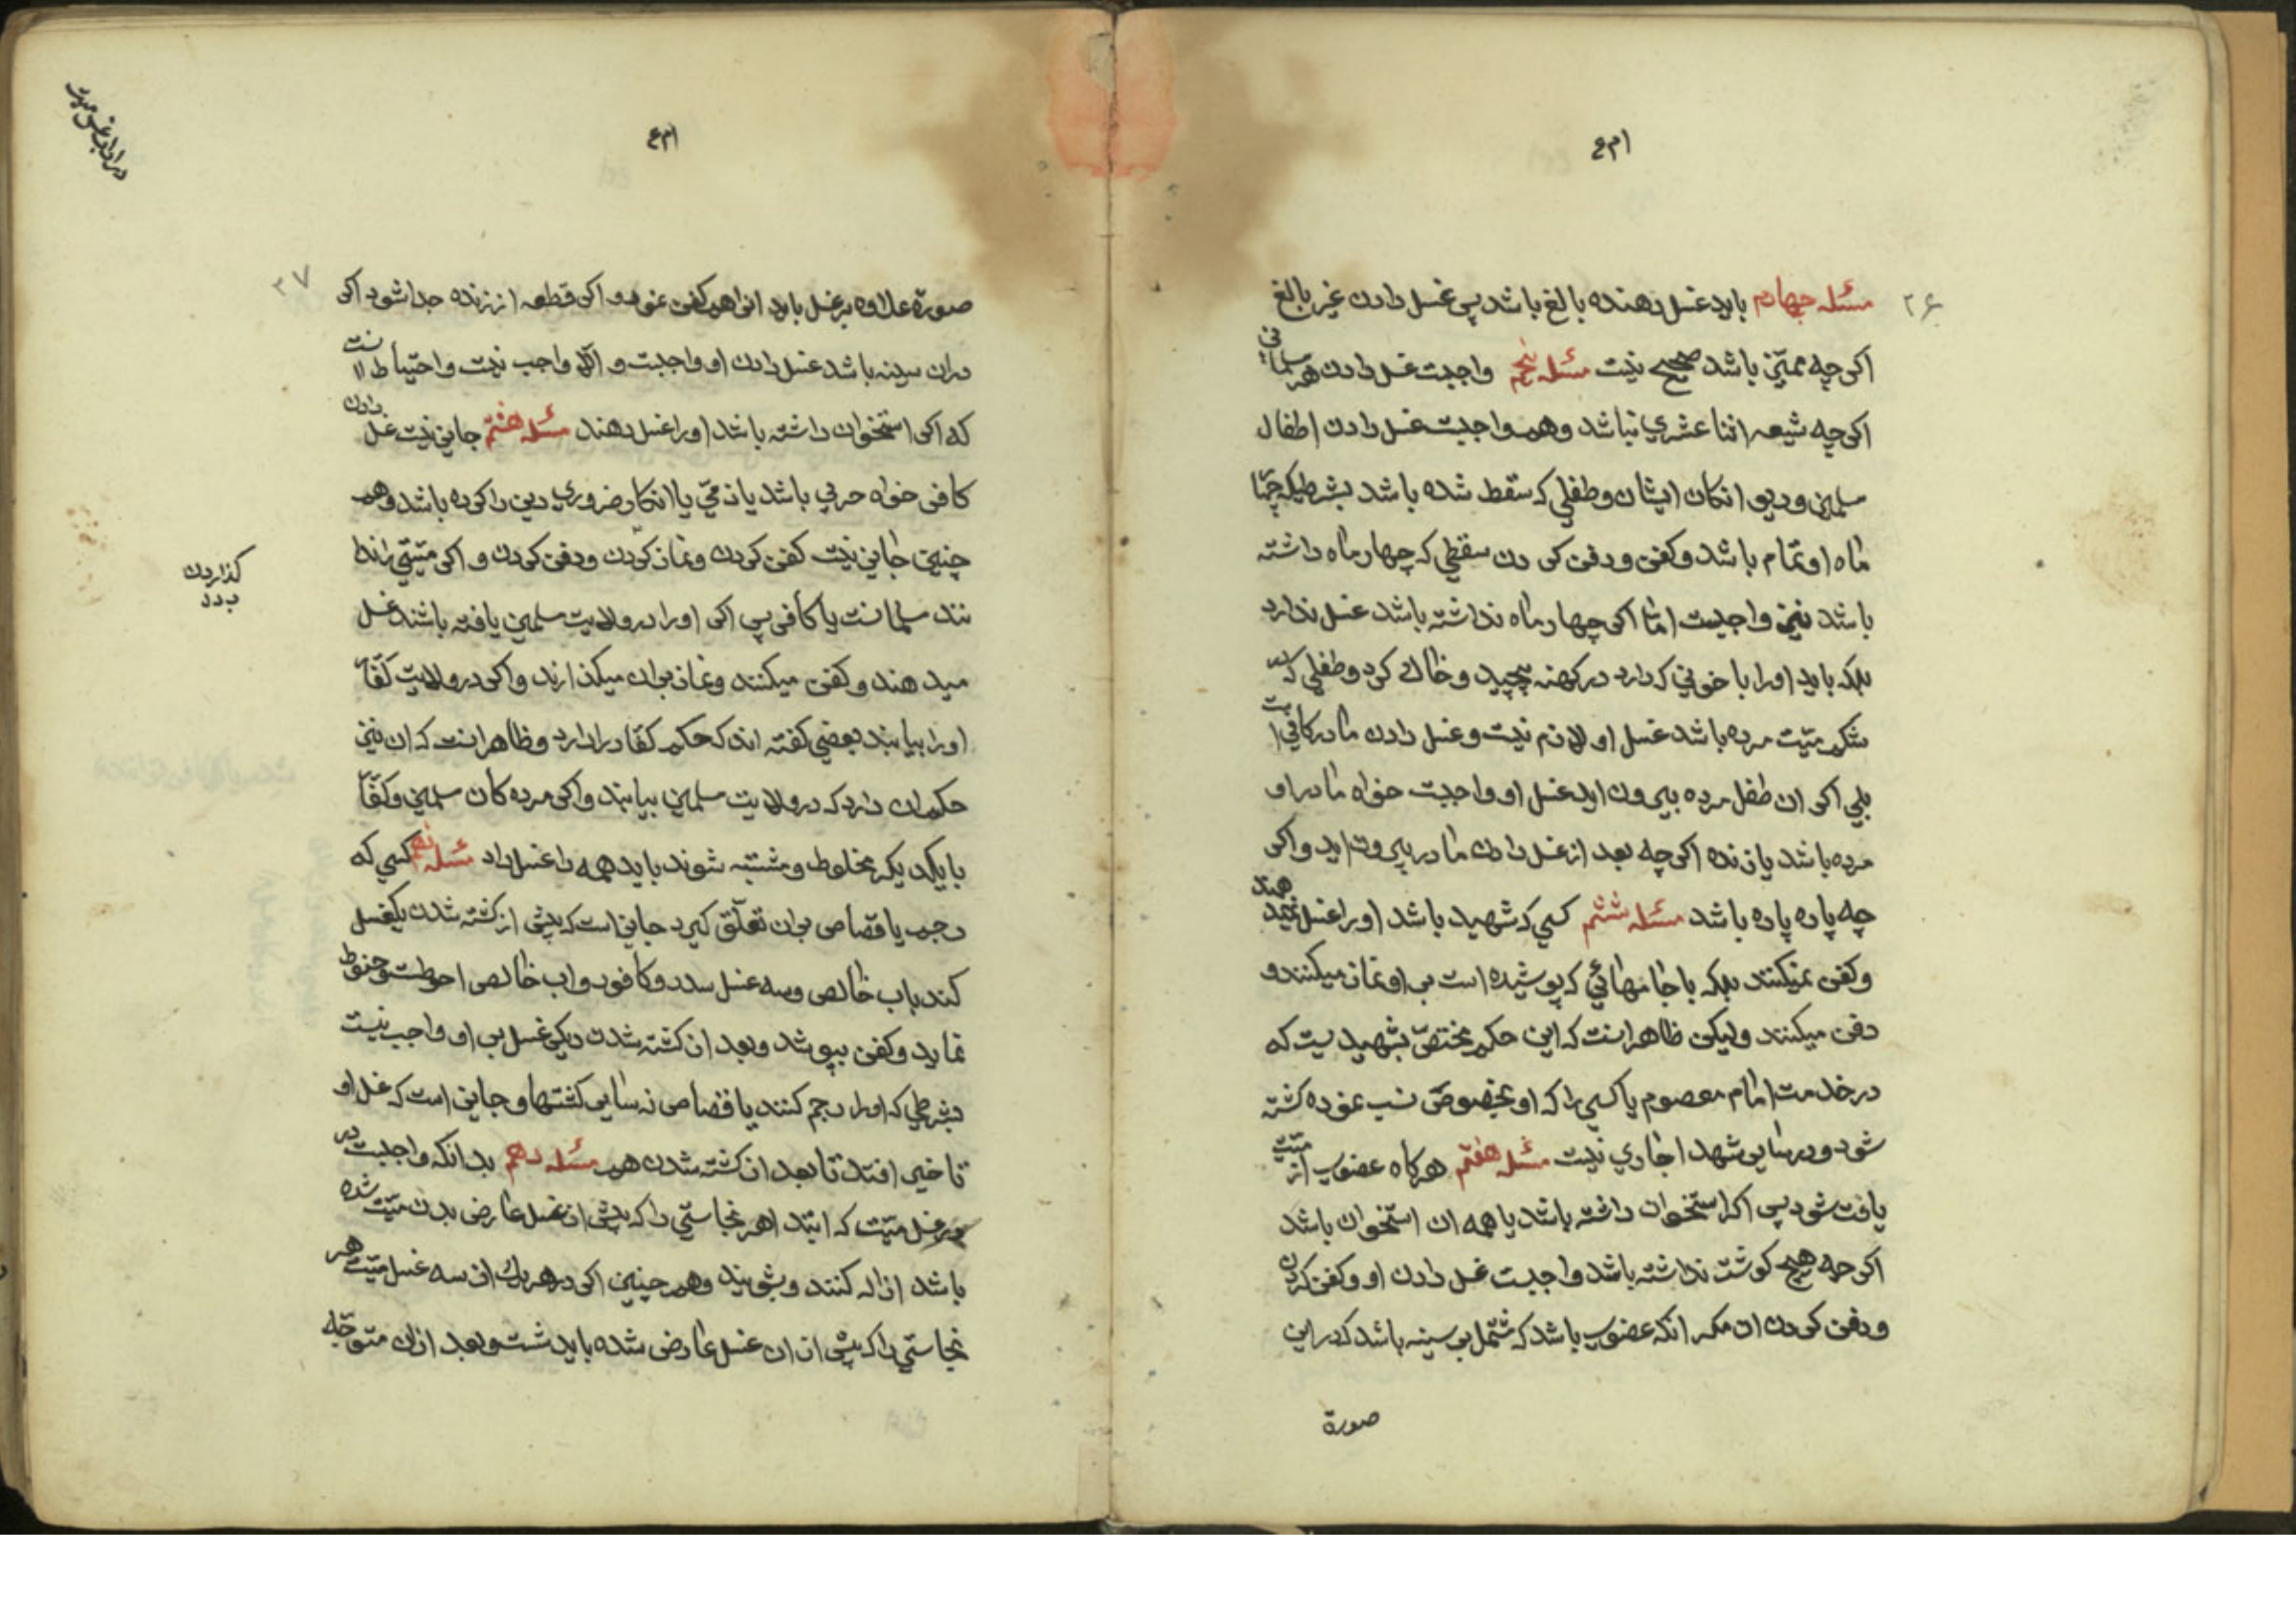 ۲۶
مسئله چهارم باید غسل دهنده بالغ باشد پس غسل دادن غیر بالغ
اکرچه ممیّز باشد صحیح نیست مسئله پنجم واجبست غسل دادن هر مسلمانی
اکرچه شیعه اثنا عشری نباشد وهم واجبست غسل دادن اطفال
مسلمین ودیوانکان ایشان وطفلی که سقط شده باشد بشرطیکه چهار
ماه او تمام باشد وکفن ودفن کردن سقطی که چهار ماه داشته
باشد نیز واجبست امّا اکر چهار ماه نداشته باشد غسل ندارد
بلکه باید اورا با خونی که دارد در کهنه پیچید وخاك کرد وطفلی که در
شکم میّت مرده باشد غسل او لازم نیست وغسل دادن مادر کافی است
بلی اکر ان طفل مرده بیرون اید غسل او واجبست خواه مادر او
مرده باشد یا زنده اکرچه بعد از غسل دادن مادر بیرون اید واکر
چه پاره پاره باشد مسئله ششم کسی که شهید باشد اورا غسل نمیدهند
وکفن نمیکنند بلکه با جامهائی که پوشیده است بر او نماز میکنند و
دفن میکنند ولیکن ظاهر انست که این حکم مختصّ بشهیدیست که
در خدمت امام معصوم یا کسی را که او بخصوص نسب نموده کشته
شود ودر سایر شهدا جاری نیست مسئله هفتم هرکاه عضوی از میّت
یافت شود پس اکر استخوان داشته باشد یا همه ان استخوان باشد
اکرچه هیچ کوشت نداشته باشد واجبست غسل دادن او وکفن کردن
ودفن کردن ان مکر انکه عضوی باشد که مشتمل بر سینه باشد که در این
صورة
۲۷
صورة علاوه بر غسل باید انرا هم کفن نمود و اکر قطعه از زنده جدا شود اکر
در ان سینه باشد غسل دادن او واجبست و الّا واجب نیست واحتیاط انست
که اکر استخوان داشته باشد اورا غسل دهند مسئله هشتم جایز نیست غسل دادن
کافر خواه حربی باشد یا ذمّی یا انکار ضروری دین را کرده باشد وهم
چنین جایز نیست کفن کردن ونماز کردن ودفن کردن و اکر میّتی را ندا
نند مسلمانست یا کافر پس اکر اورا در ولایت مسلمین یافته باشند غسل
میدهند وکفن میکنند ونماز بر ان میکذارند واکر در ولایت کفّار
اورا بیابند بعضی کفته اند که حکم کفّار را دارد وظاهر انست که ان نیز
حکم ان دارد که در ولایت مسلمین بیابند واکر مرده کان مسلمین وکفّار
با یکدیکر مخلوط ومشتبه شوند باید همه را غسل داد مسئله نهم کسی که
رجم یا قصاص بر ان تعلّق کیرد جایز است که پیش از کشته شدن یکغسل
کند باب خالص وسه غسل سدر وکافور واب خالص احوطست وحنوط
نماید وکفن بپوشد وبعد از کشته شدن دیکر غسل بر او واجب نیست
بشرطی که اورا رجم کنند یا قصاص نه سایر کشتنها وجایز است که غسل او
تاخیر افتد تا بعد از کشته شدن هم مسئله دهم بدانکه واجبست در
غسل میّت که ابتدا هر نجاستی را که پیش از غسل عارض بدن میّت شده
باشد ازاله کنند وبشویند وهم چنین اکر در هر یك از سه غسل میّت هر
نجاستی را که پیش از ان غسل عارض شده باید شست وبعد از ان متوجّه
کذاردن